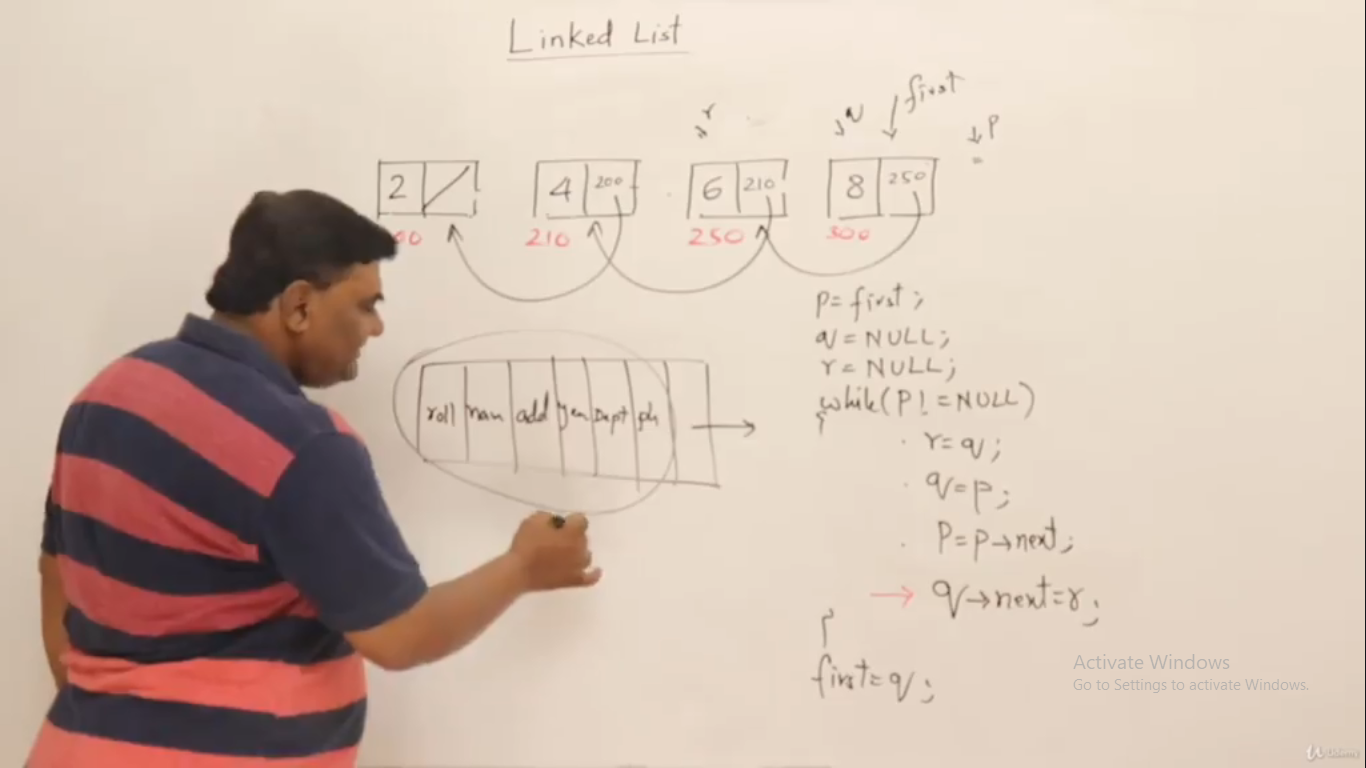 Linked List
first
r
q
p
2
4 200
6 210
8 250
00 210 250 300
roll nam add gen Dept ph
p = first ;
q = NULL;
r = NULL;
while(P! = NULL)
{
r = q ;
q = p ;
P = p→next ;
→ q→next = r ;
}
first = q ;
Activate Windows
Go to Settings to activate Windows.
Udemy